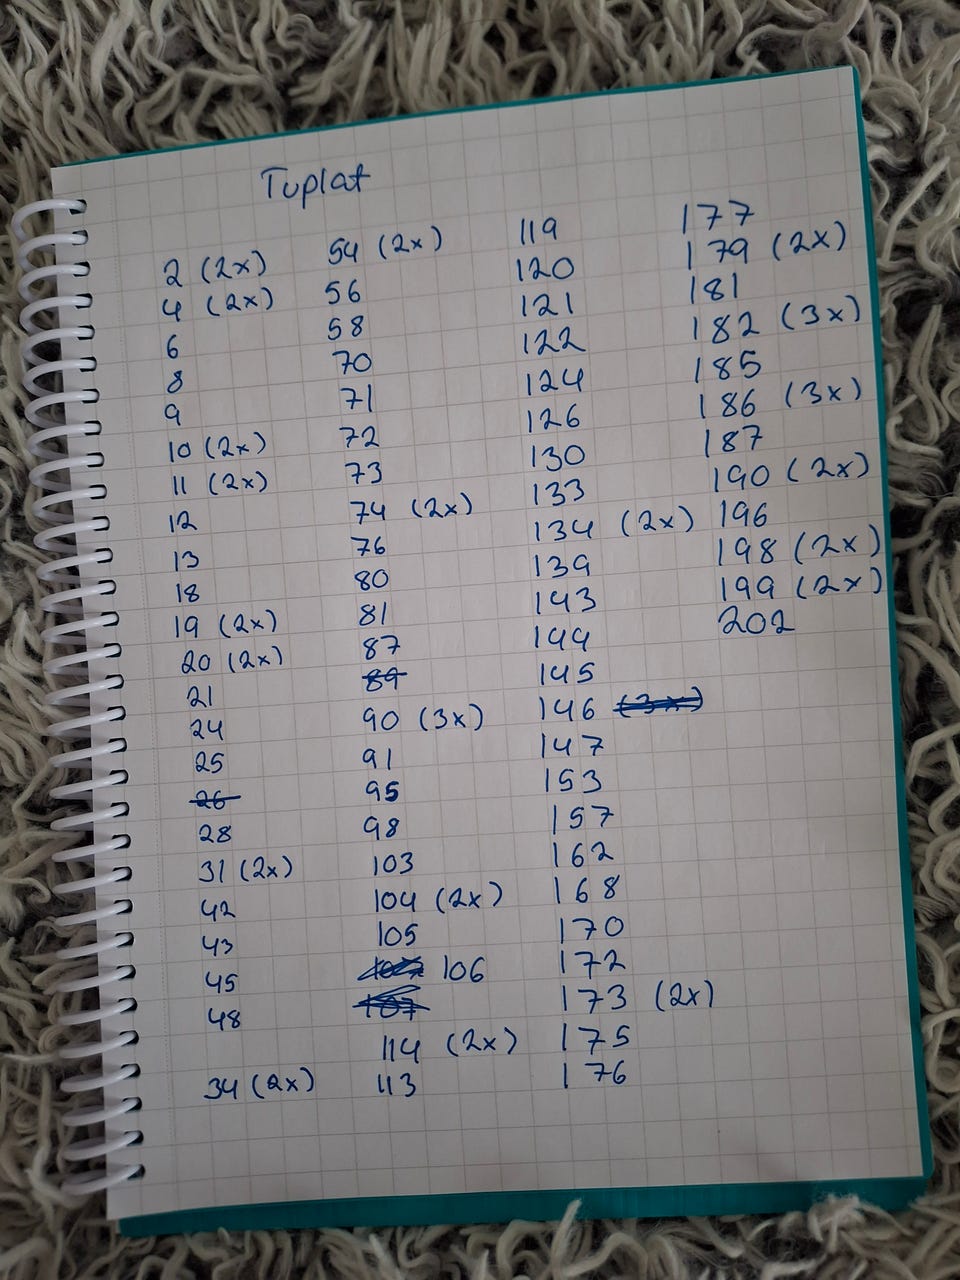 Tuplat
2 (2x)
4 (2x)
6
8
9
10 (2x)
11 (2x)
12
13
18
19 (2x)
20 (2x)
21
24
25
26
28
31 (2x)
42
43
45
48
34 (2x)
54 (2x)
56
58
70
71
72
73
74 (2x)
76
80
81
87
89
90 (3x)
91
95
98
103
104 (2x)
105
106
107
114 (2x)
113
119
120
121
122
124
126
130
133
134 (2x)
139
143
144
145
146 (3x)
147
153
157
162
168
170
172
173 (2x)
175
176
177
179 (2x)
181
182 (3x)
185
186 (3x)
187
190 (2x)
196
198 (2x)
199 (2x)
202